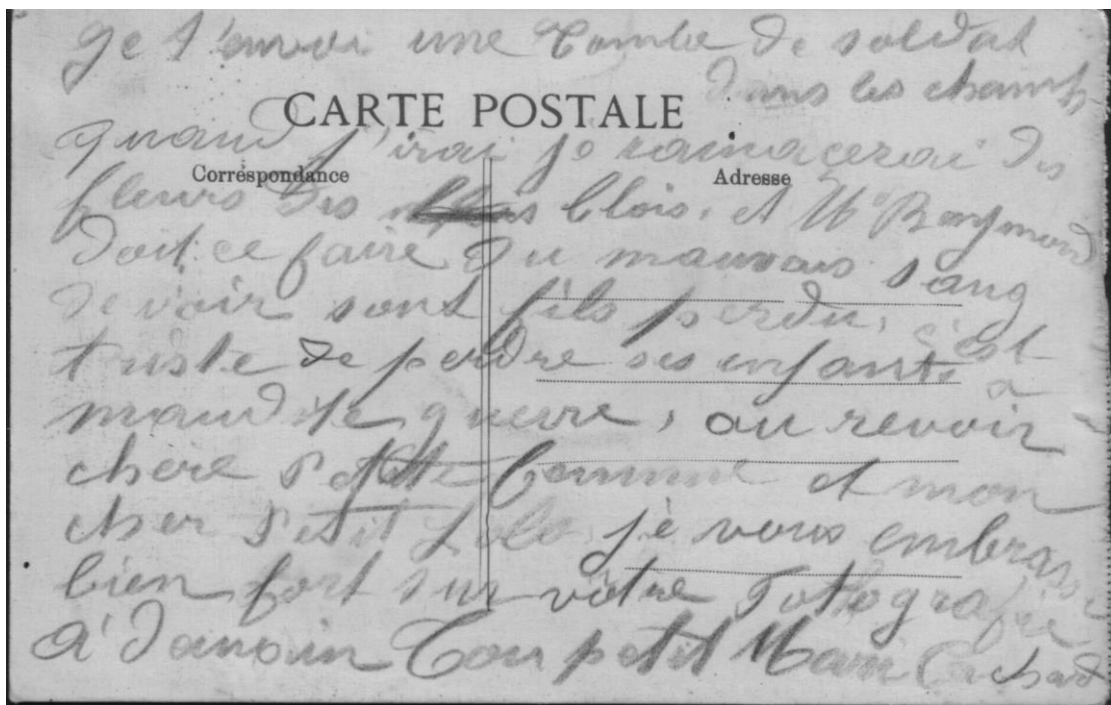 je t'envoi une tombe de soldat
dans les champs
CARTE POSTALE
quand j'irai je ramacerai des
Correspondance
Adresse
fleurs des blois, et Me Raymond
doit ce faire du mauvais sang
de voir sont fils perdu, c'est
triste de perdre ses enfants a
maudite guerre, au revoir
chere Petite femme et mon
cher Petit Lolo je vous embrasse
bien fort sur vôtre Fotografie
A' demain Ton petit Mari